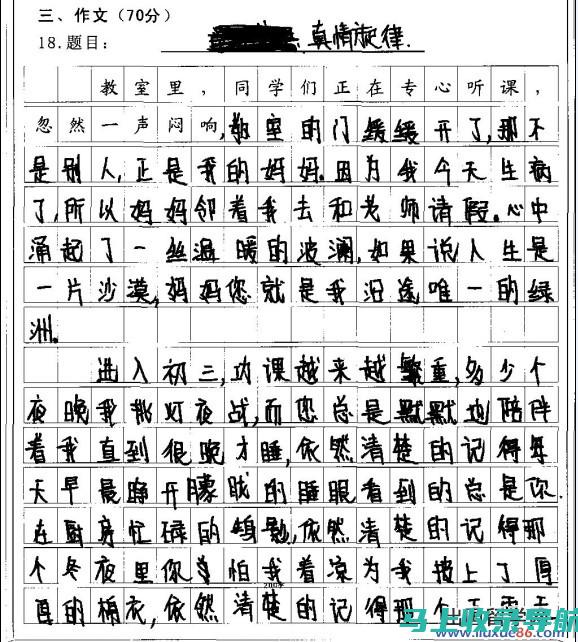 三、作文(70分)
18.题目：真情旋律.
教室里，同学们正在专心听课，
忽然一声闷响,教室的门缓缓开了,那不
是别人,正是我的妈妈。因为我今天生病
了,所以妈妈领着我去和老师请假。心中
涌起了一丝温暖的波澜,如果说人生是
一片沙漠,妈妈您就是我沿途唯一的绿
洲。
进入初三,功课越来越繁重,多少个
夜晚我挑灯夜战,而您总是默默地陪伴
着我直到很晚才睡,依然清楚的记得每
天早晨睁开朦胧的睡眼看到的总是你
在厨房忙碌的身影,依然清楚的记得那
个冬夜里你害怕我着凉为我披上了厚
厚的棉衣,依然清楚的记得那个下雨天
www.iluxde86.com